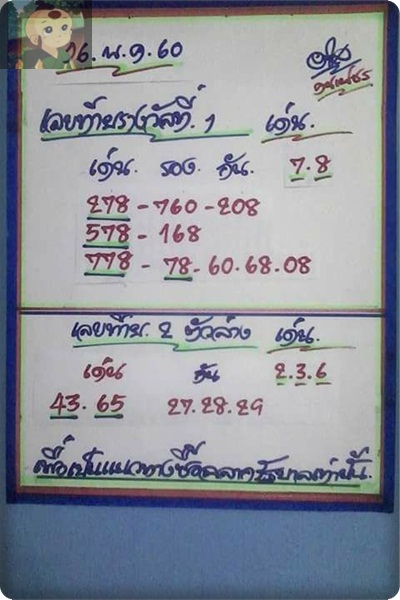 16. พ.ค. 60
เลขท้ายรางวัลที่. 1 เด่น.
เด่น. รอง. กัน. 7.8
278 - 760 - 208
578 - 168
778 - 78. 60. 68. 08
เลขท้าย. 2 ตัวล่าง เด่น.
เด่น กัน 2.3.6
43. 65 27. 28. 29
เพื่อเป็นแนวทางซื้อสลากรัฐบาลเท่านั้น.